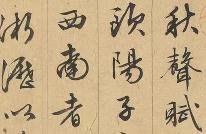 秋聲賦
歐陽子
西南者
淅瀝以